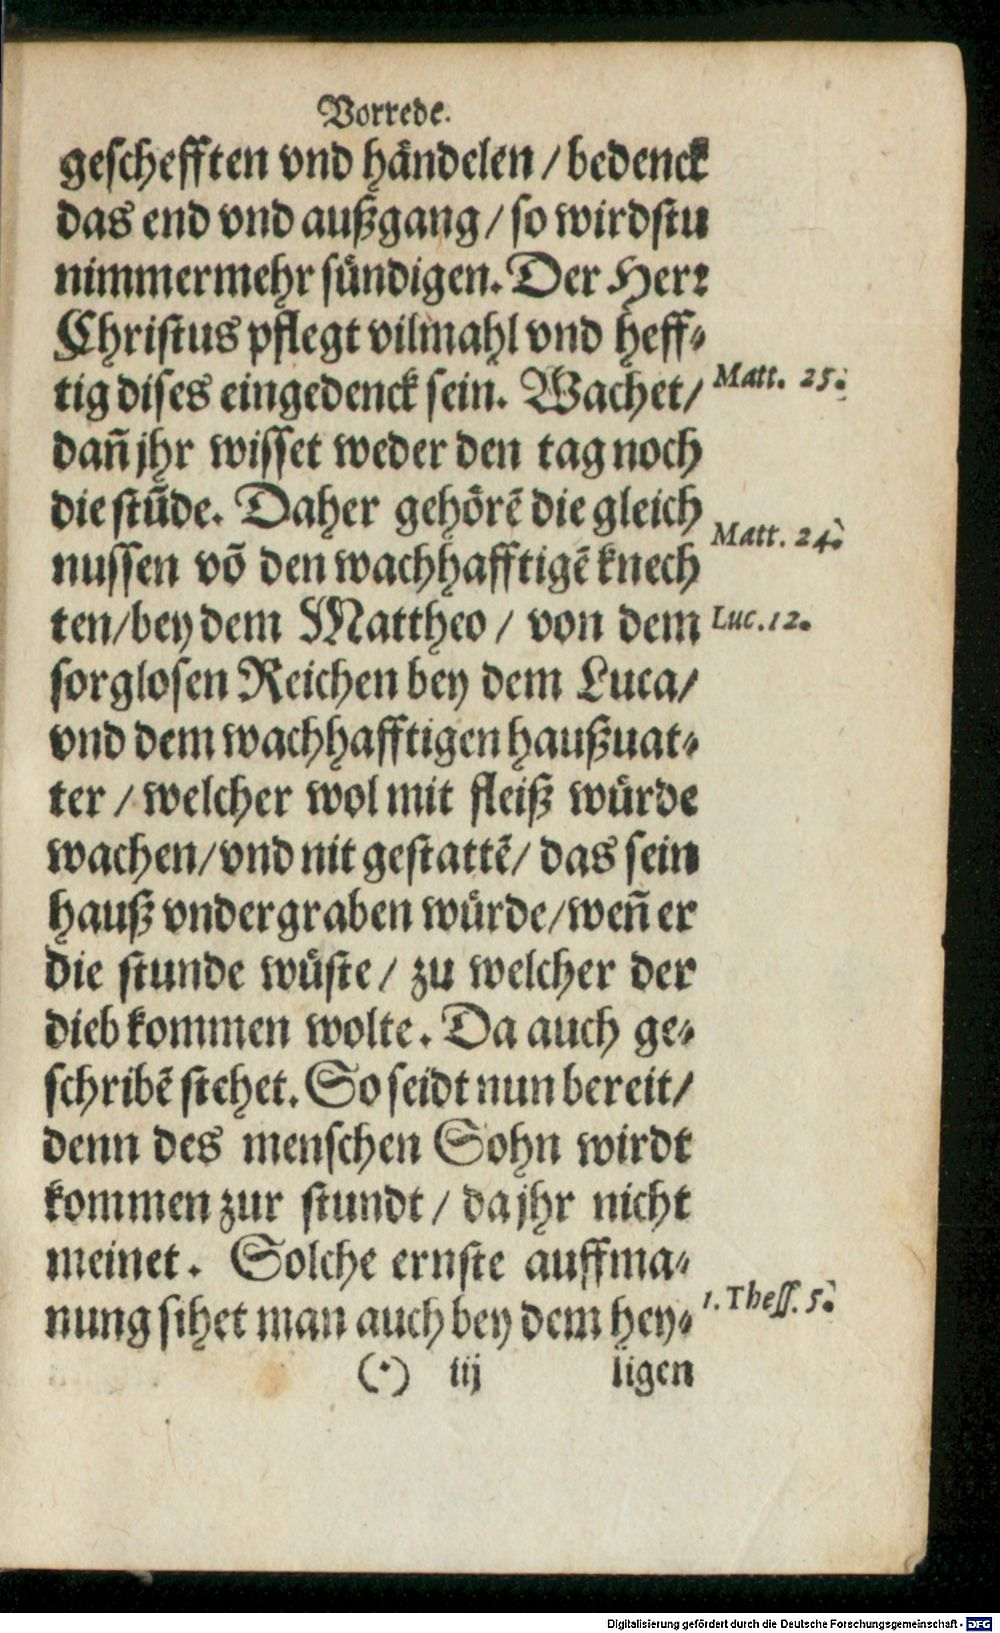 Vorrede.
geschefften vnd händelen / bedenck
das end vnd außgang / so wirdstu
nimmermehr sündigen. Der Herr
Christus pflegt vilmahl vnd heff⸗
tig dises eingedenck sein. Wachet / Matt. 25.
dañ jhr wisset weder den tag noch
die stũde. Daher gehörẽ die gleich
nussen võ den wachhafftigẽ knech Matt. 24.
ten / bey dem Mattheo / von dem Luc. 12.
sorglosen Reichen bey dem Luca /
vnd dem wachhafftigen haußuat⸗
ter / welcher wol mit fleiß würde
wachen / vnd nit gestattẽ / das sein
hauß vndergraben würde / weñ er
die stunde wüste / zu welcher der
dieb kommen wolte. Da auch ge⸗
schribẽ stehet. So seidt nun bereit /
denn des menschen Sohn wirdt
kommen zur stundt / da jhr nicht
meinet. Solche ernste auffma⸗
nung sihet man auch bey dem hey⸗ 1. Thess. 5.
(·) iij ligen
Digitalisierung gefördert durch die Deutsche Forschungsgemeinschaft - DFG